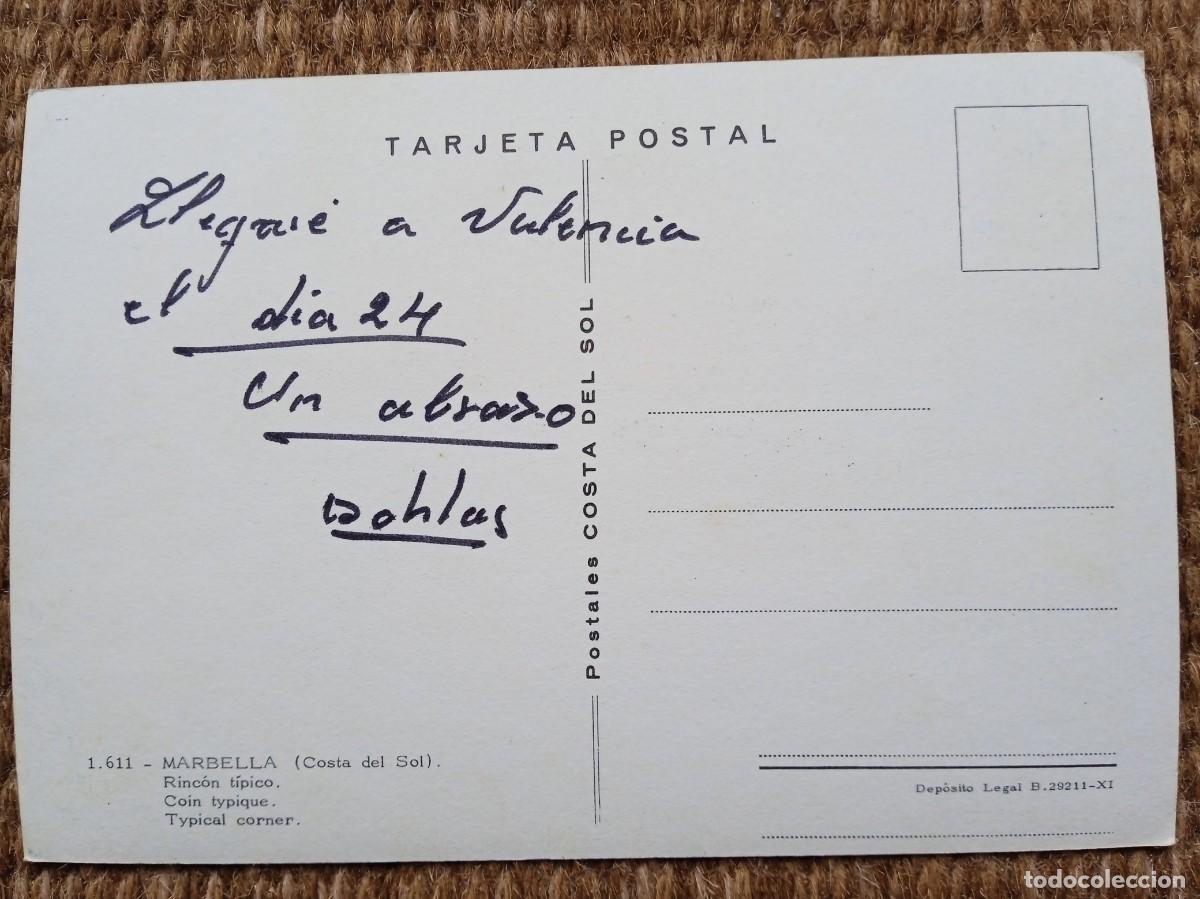 TARJETA POSTAL
Llegué a Valencia
el dia 24
Un abrazo
Postales COSTA DEL SOL
1.611 - MARBELLA (Costa del Sol).
Rincón típico.
Coin typique.
Typical corner.
Depósito Legal B.29211-XI
todocoleccion